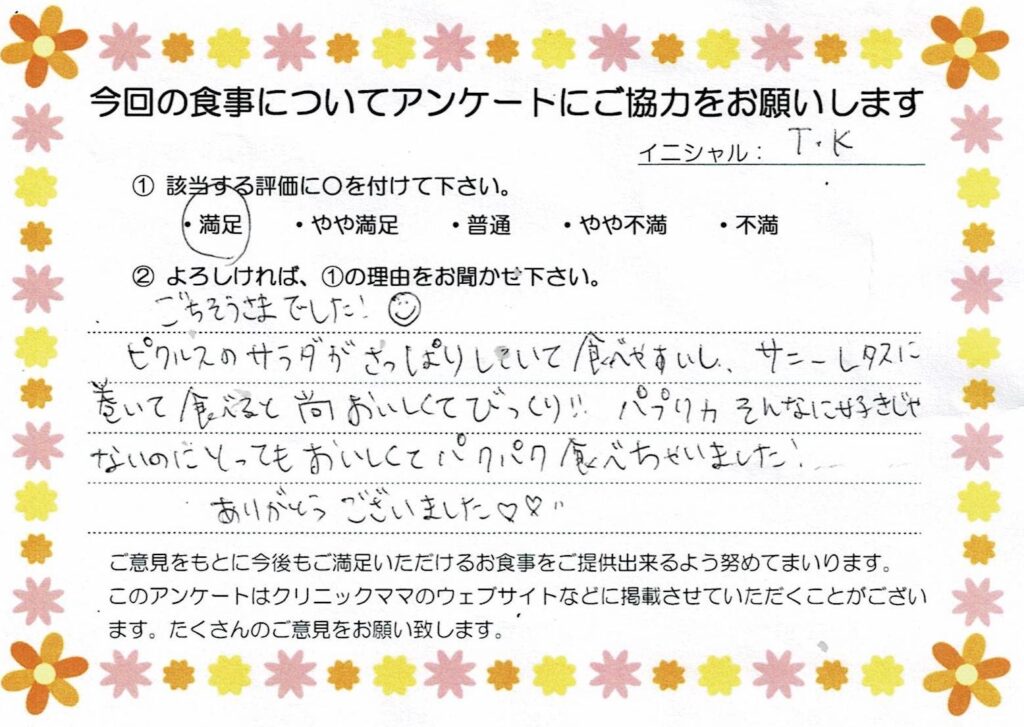 今回の食事についてアンケートにご協力をお願いします
イニシャル： T・K
① 該当する評価に〇を付けて下さい。
・満足 ・やや満足 ・普通 ・やや不満 ・不満
② よろしければ、①の理由をお聞かせ下さい。
ごちそうさまでした！
ピクルスのサラダがさっぱりしていて食べやすいし、サニーレタスに
巻いて食べると尚おいしくてびっくり!! パプリカそんなに好きじゃ
ないのにとってもおいしくてパクパク食べちゃいました！
ありがとうございました♡♡
ご意見をもとに今後もご満足いただけるお食事をご提供出来るよう努めてまいります。
このアンケートはクリニックママのウェブサイトなどに掲載させていただくことがござい
ます。たくさんのご意見をお願い致します。